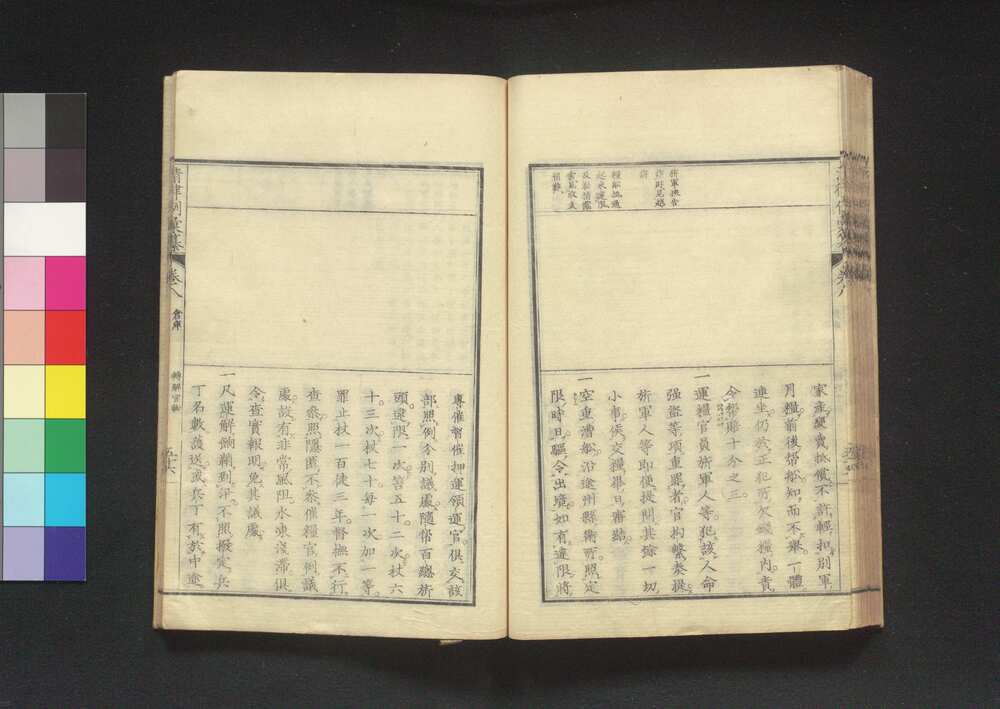 家產變賣抵償不許輕扣別軍
月糧前後幫船知而不舉一體
連坐仍於正犯所欠錢糧內責
令幫賠十分之三
一運糧官員旂軍人等犯該人命
強盜等項重罪者官拘繫奏提
旂軍人等即便提問其餘一切
小事俟交糧畢日審結
一空重漕船沿途州縣衛所照定
限時日驅令出境如有違限將
專催督催押運領運官俱交該
部照例分別議處隨幫百總旂
頭違限一次笞五十二次杖六
十三次杖七十每一次加一等
罪止杖一百徒三年督撫不行
查參照隱匿不參催糧官例議
處故有非常風阻水凍淺滯俱
令查實報明免其議處
一凡運解餉鞘到汛不照撥定兵
丁名數護送或兵丁有於中途
清律例彙纂
卷八
倉庫
轉解官物
五十六